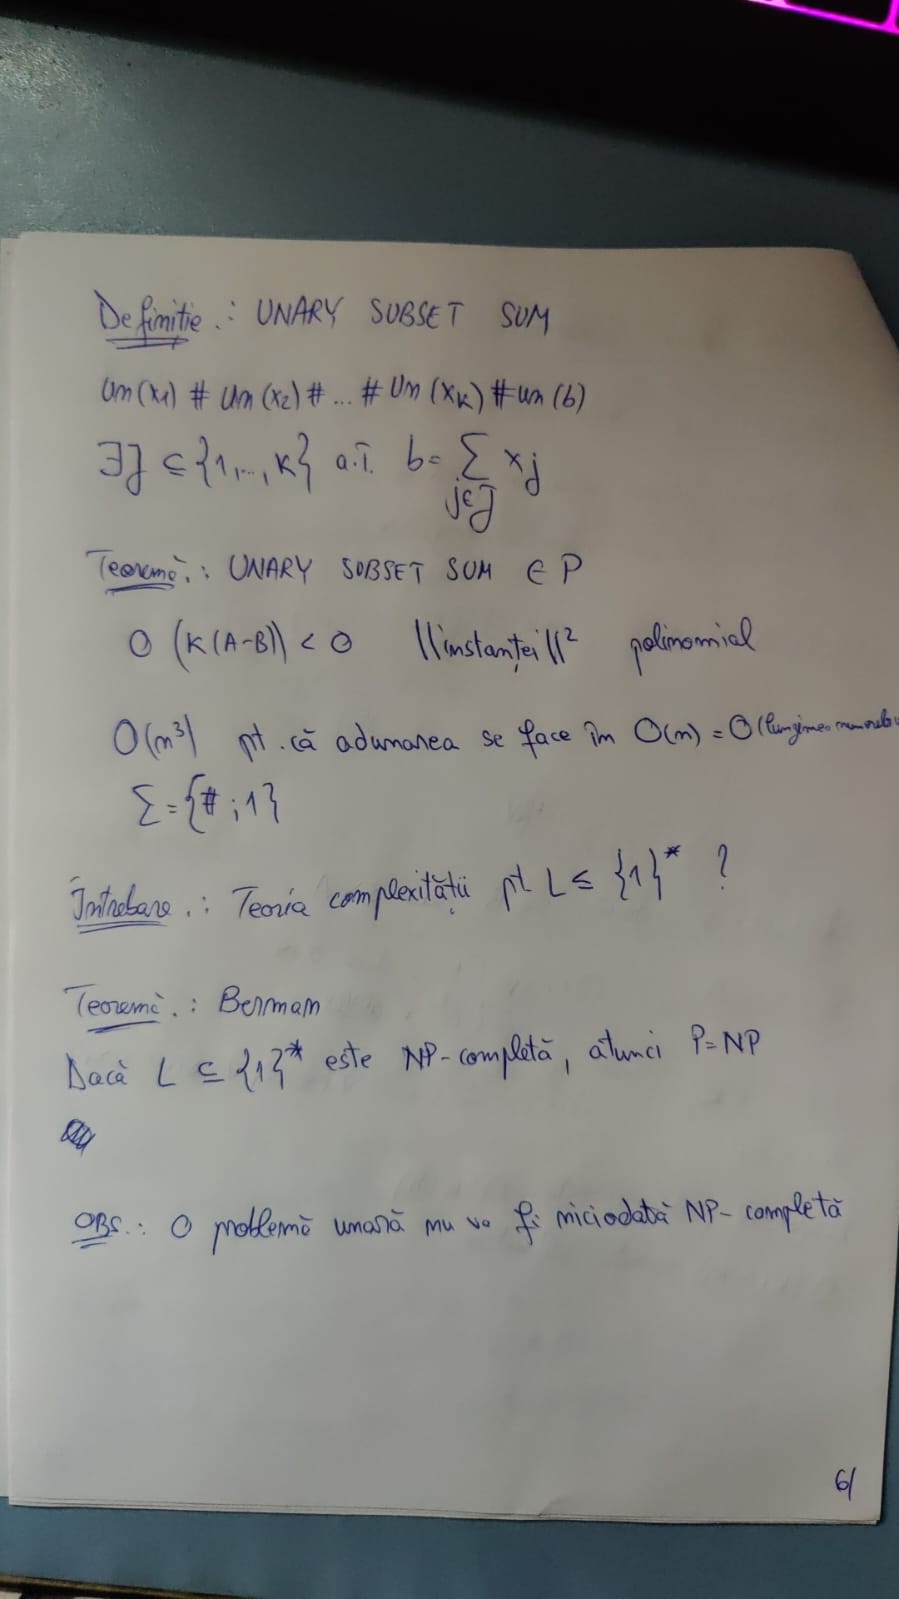 Definitie.: UNARY SUBSET SUM
un(x1) # un(x2) # ... # un(xK) # un(b)
∃J ⊆ {1,...,K} a.î. b = Σ j∈J xj
Teoremă.: UNARY SUBSET SUM ∈ P
O (K(A-B)) < O ||instanței||² polinomial
O(n³) pt. că adunarea se face în O(n) = O(lungimea
Σ = {# ; 1}
Întrebare.: Teoria complexității pt. L ≤ {1}* ?
Teoremă.: Berman
Dacă L ⊆ {1}* este NP-completă, atunci P=NP
OBS.: O problemă unară nu va fi niciodată NP-completă
6/